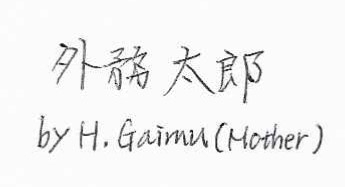 外務太郎
by H. Gaimu (Mother)